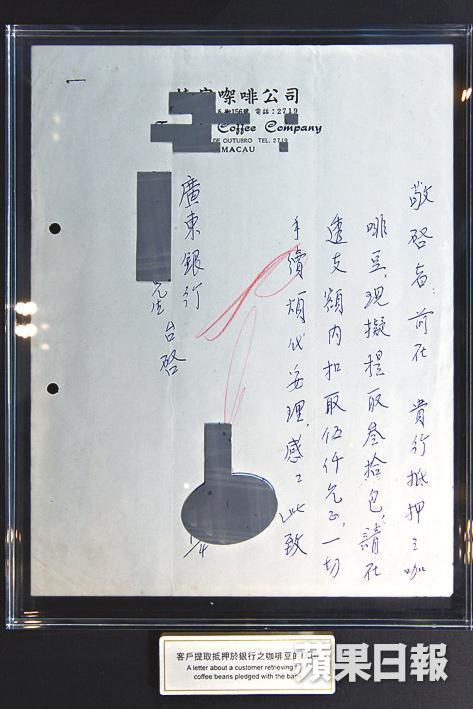 㗎啡公司
156號 電話:2719
Coffee Company
DE OUTUBRO TEL. 2719
MACAU
敬啓者:前在 貴行抵押之咖
啡豆,現擬提取叁拾包,請在
透支額內扣取伍仟元正,一切
手續煩代妥理,感之,此致
廣東銀行
先生 台啓
1/4
客戶提取抵押於銀行之咖啡豆的
A letter about a customer retrieving
coffee beans pledged with the ban
蘋果日報